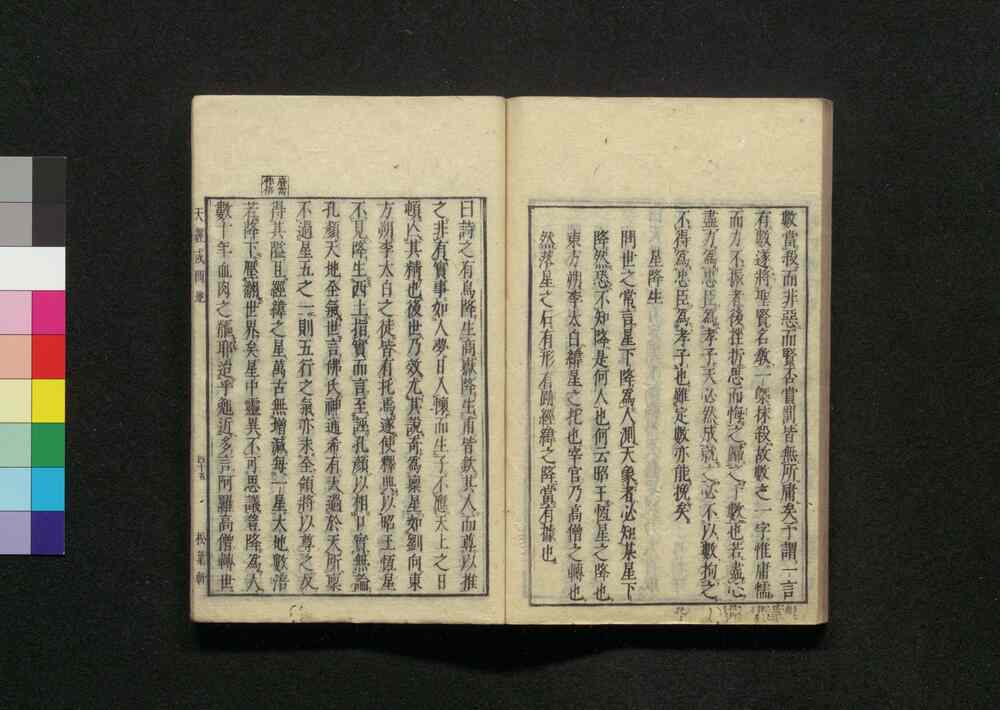 數當我而非惡而賢否賞罰皆無所庸矣予謂一言
有數遂將聖賢名教一槩抹殺故數之一字惟庸懦
而力不振者後往折思而悔之歸之于數也若盡心
盡力為忠臣為孝子天必然成就之必不以數拘之
不得為忠臣為孝子也雖定數亦能挽矣
星降生
問世之常言星下降為人測天象者必知某星下
降然恐不知降是何人也何云昭王恆星之降也
東方朔李太白緯星之托也宰官乃高僧之轉也
然落星之石有形有跡經緯之降當有據也
曰詩之有鳥降生商嶽降生甫皆欽其人而尊以推
之非有實事如人夢日入懷而生子不應天上之日
頓亾其精也後世乃效尤其說奇為稟星如劉向東
方朔李太白之徒皆有托焉遂使釋典以昭王恆星
不見降生西土指實而言至誣孔顏以相只實無論
孔顏天地全氣世言佛氏神通希有太過於天所稟
不過星五之一則五行之氣亦未全領將以尊之反
得其隘且經緯之星萬古無增減每一星大地數倍
若降下壓潮世界矣星中靈異不可思議豈降為人
數十年血肉之軀耶迨乎邇近多言阿羅高僧轉世
天經或問
四十五
松葉軒